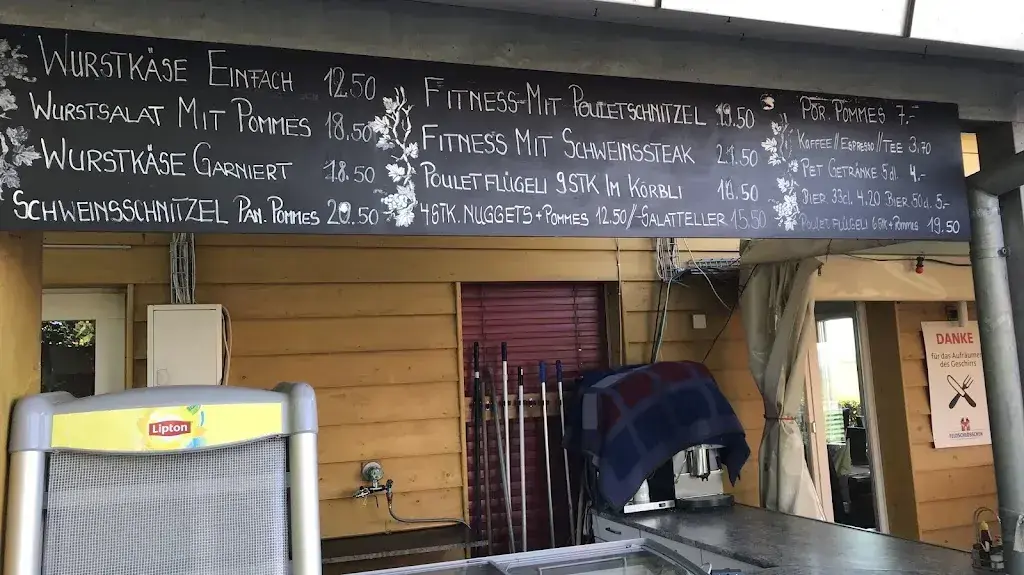 WURSTKÄSE EINFACH 12.50
WURSTSALAT MIT POMMES 18.50
WURSTKÄSE GARNIERT 18.50
SCHWEINSSCHNITZEL PAN. POMMES 20.50
FITNESS-MIT POULETSCHNITZEL 19.50
FITNESS MIT SCHWEINSSTEAK 21.50
POULETFLÜGELI 9STK IM KÖRBLI 16.50
4STK. NUGGETS+POMMES 12.50//-SALATTELLER 15.50
POR. POMMES 7.-
KAFFEE//ESPRESSO//TEE 3.70
PET GETRÄNKE 5dl. 4.-
BIER 33cl 4.20 BIER 50cl. 5.-
POULET FLÜGELI 6STK+POMMES 19.50
Lipton
DANKE
für das Aufräumen
des Geschirrs